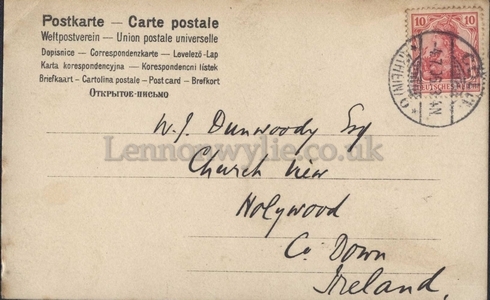 Postkarte — Carte postale
Weltpostverein — Union postale universelle
Dopisnice — Correspondenzkarte — Levelező-Lap
Karta korespondencyjna — Korespondenční lístek
Briefkaart — Cartolina postale — Post card — Brefkort
Открытое-письмо
10 10
DEUTSCHES
(RHEIN)
W. J. Dunwoody Esq
Lennonwylie.co.uk
Church View
Holywood
Co. Down
Ireland.